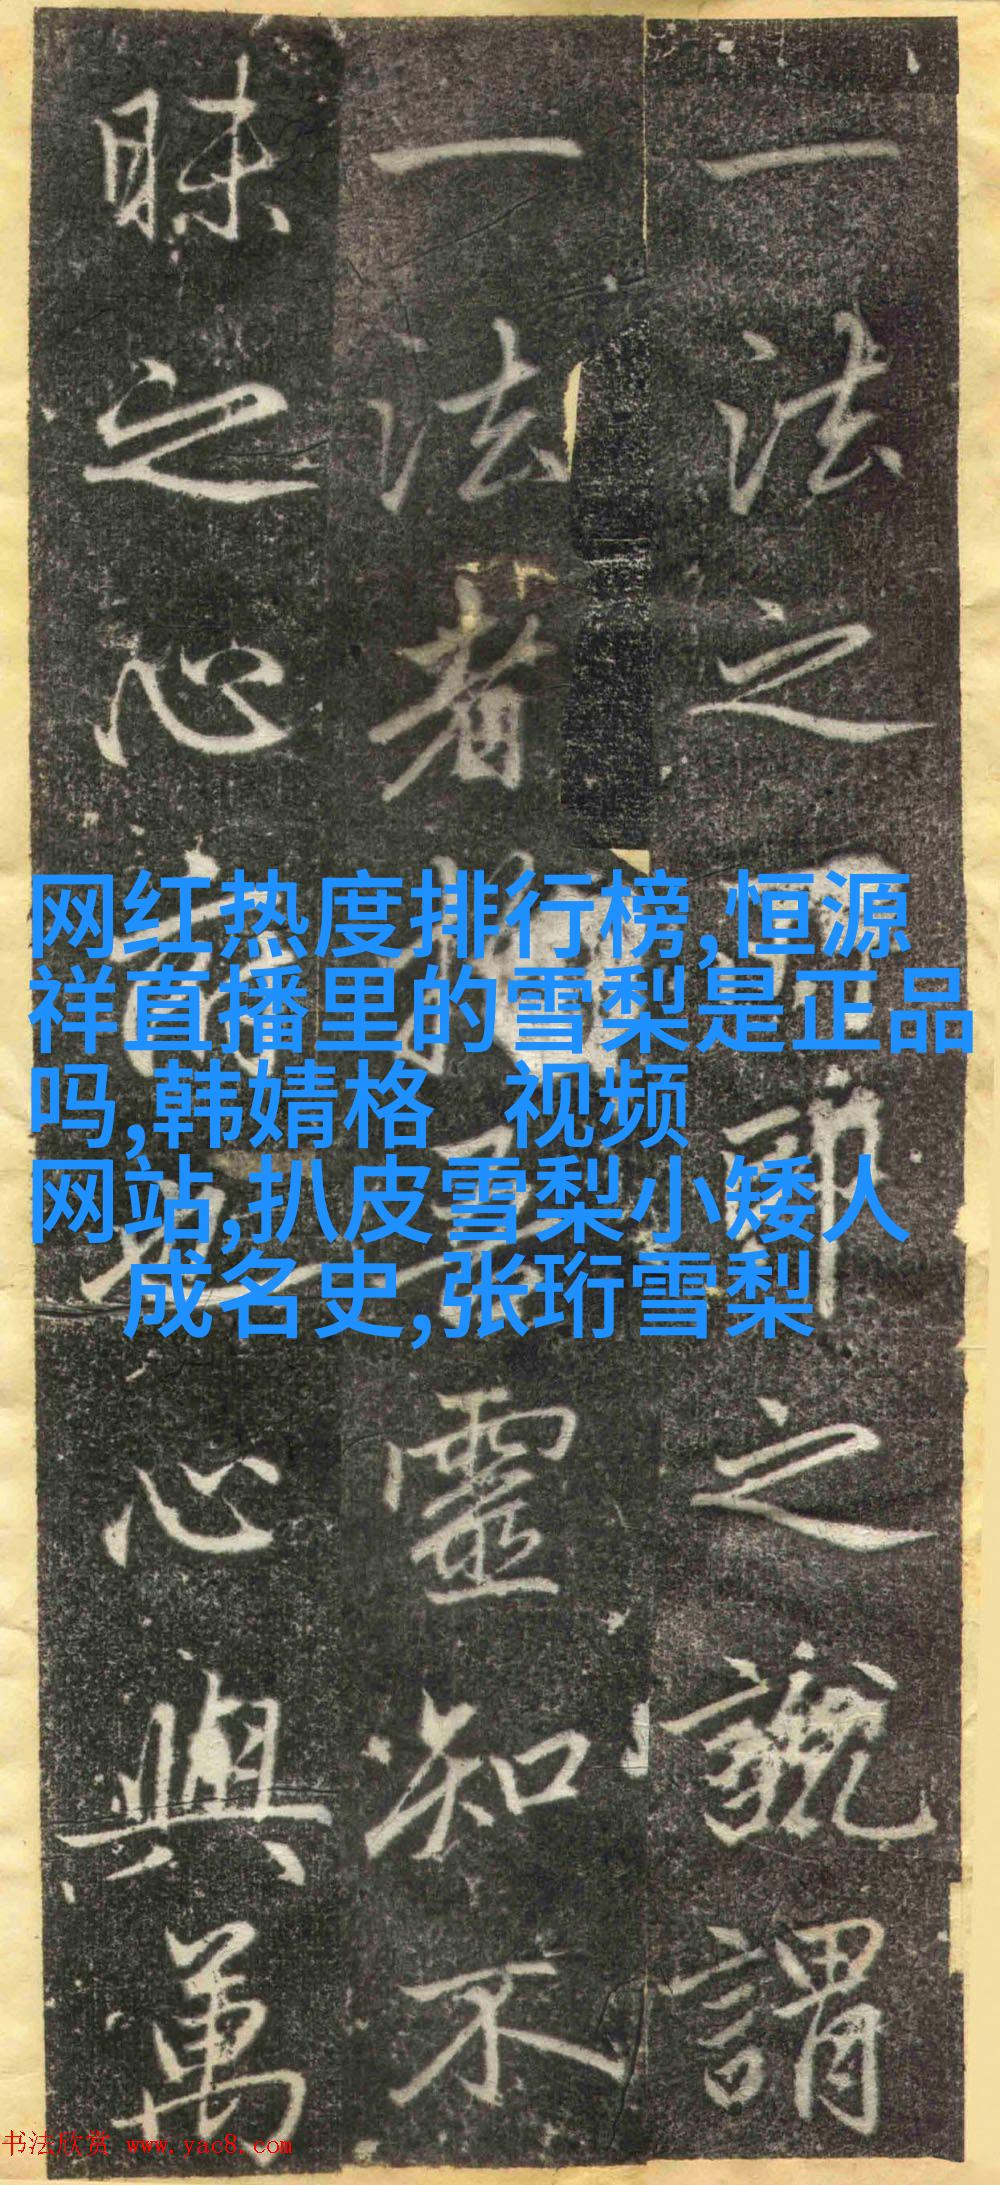 一法之
之
謂
一法者
靈知不
昧之心
心與萬
网红热度排行榜,恒源
祥直播里的雪梨是正品
吗,韩婧格 视频
网站,扒皮雪梨小矮人
成名史,张珩雪梨
书法欣赏 www.yac8.com